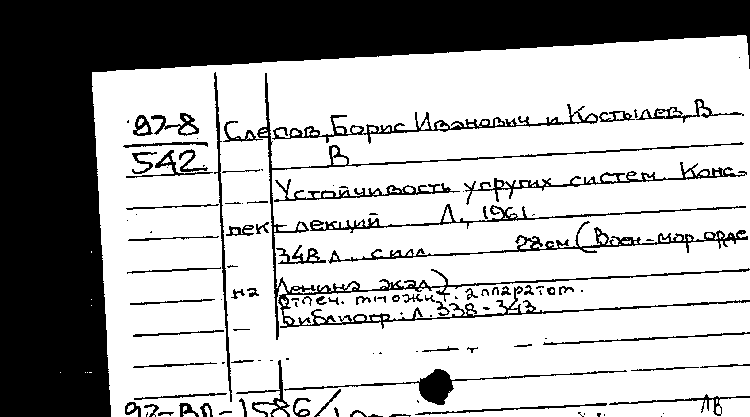 97-8
542
Слепов, Борис Иванович и Костылев, В
В
Устойчивость упругих систем Конс-
пект лекций Л., 1961
348 л. с илл. 28 см (Воен-мор. орде
на Ленина акад)
Отпеч. множит. аппаратом.
Библиогр: л. 338-343.
97-ВЛ-1586/
ЛВ